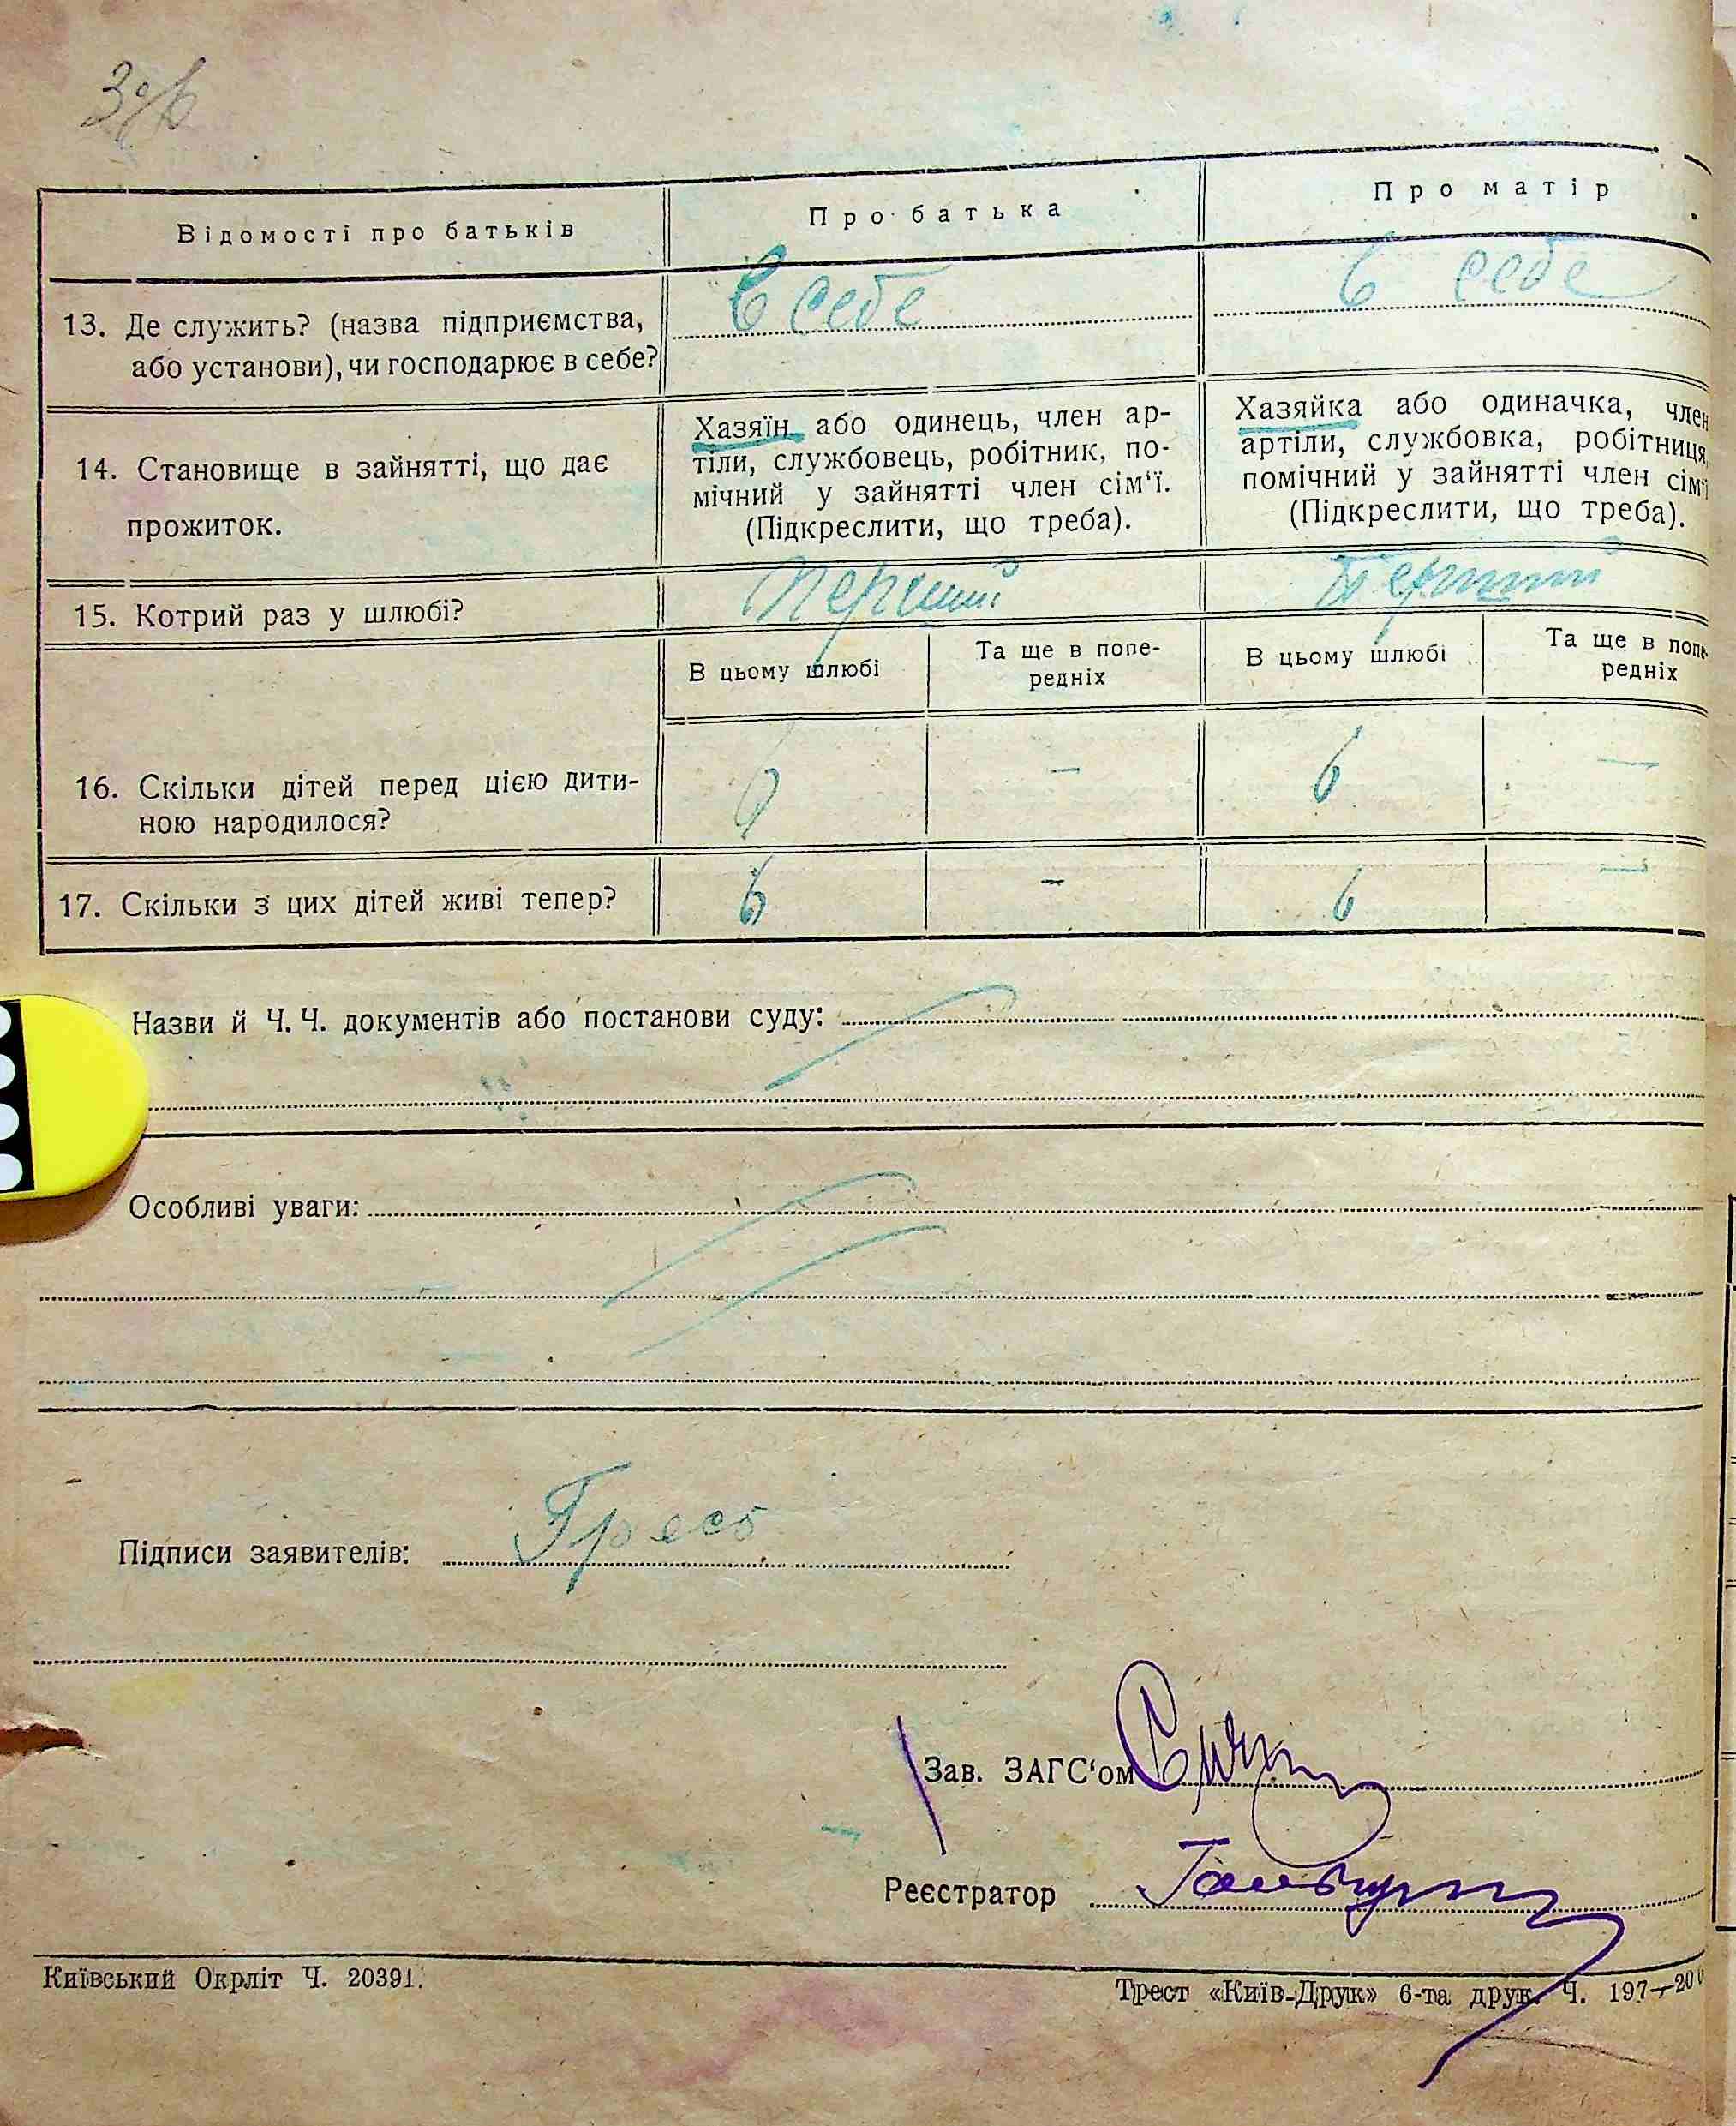 Відомості про батьків
Про батька
Про матір
13. Де служить? (назва підприємства, або установи), чи господарює в себе?
В себе
в себе
14. Становище в зайнятті, що дає прожиток.
Хазяїн або одинець, член ар-
тіли, службовець, робітник, по-
мічний у зайнятті член сім'ї.
(Підкреслити, що треба).
Хазяйка або одиначка, член
артіли, службовка, робітниця,
помічний у зайнятті член сім'ї
(Підкреслити, що треба).
15. Котрий раз у шлюбі?
Перший
Перший
В цьому шлюбі
Та ще в попе-
редніх
В цьому шлюбі
Та ще в попе-
редніх
16. Скільки дітей перед цією дити-
ною народилося?
6
—
6
—
17. Скільки з цих дітей живі тепер?
6
-
6
—
Назви й Ч. Ч. документів або постанови суду:
Особливі уваги:
Підписи заявителів:
Зав. ЗАГС'ом
Реєстратор
Київський Окрліт Ч. 20391.
Трест «Київ-Друк» 6-та друк. Ч. 197—200